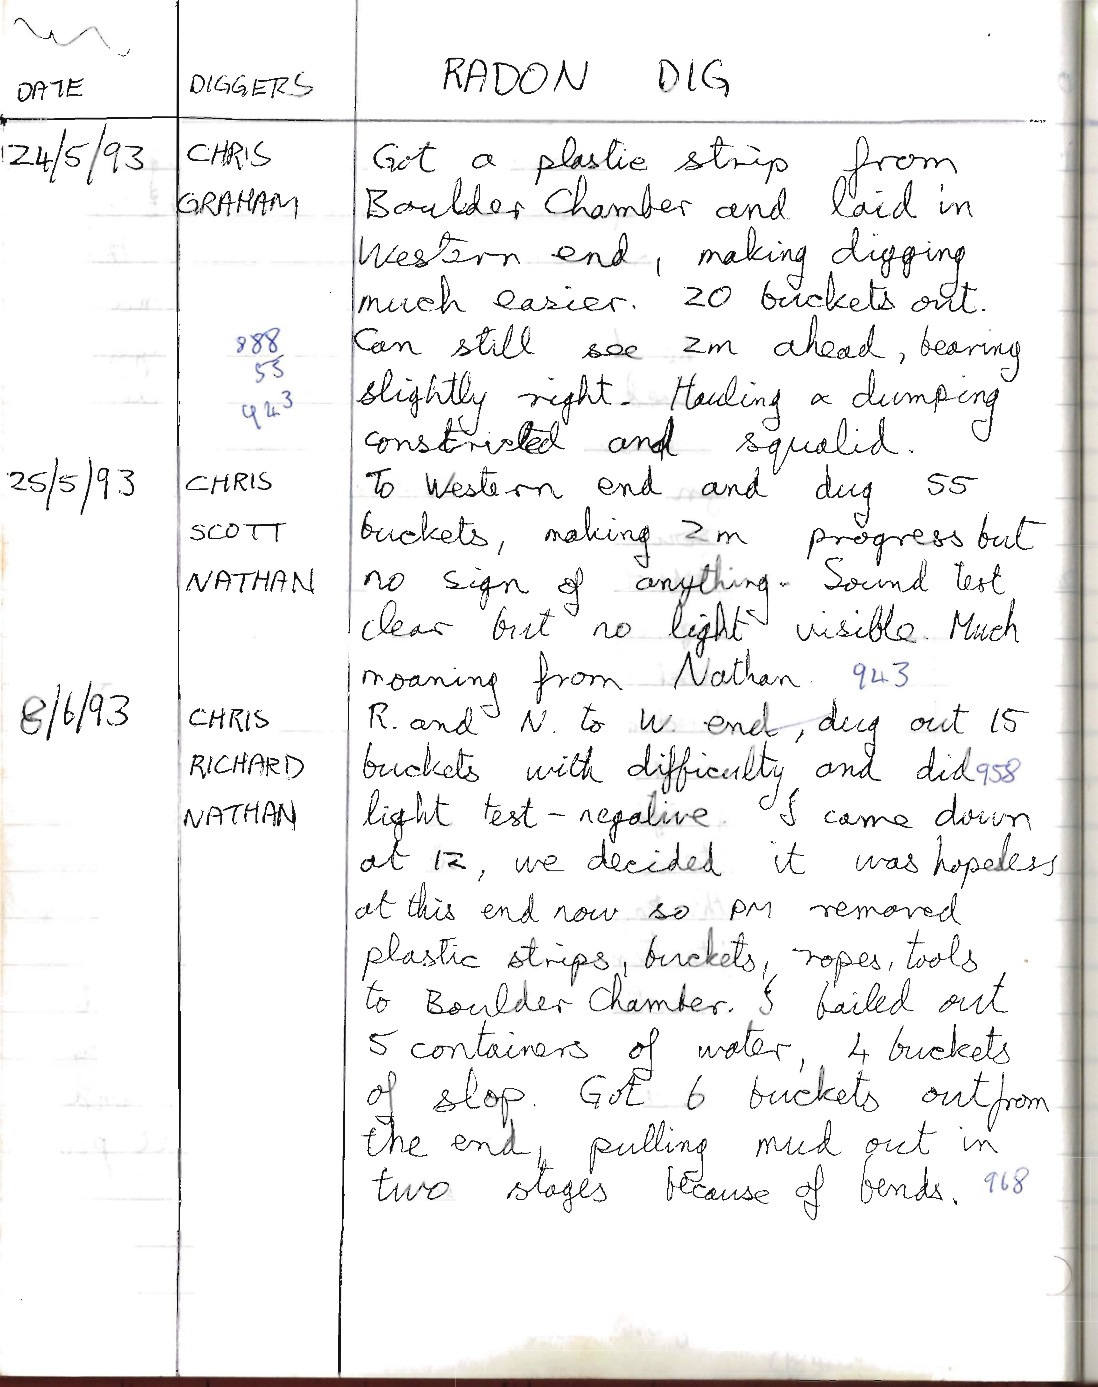 DATE DIGGERS RADON DIG
24/5/93 CHRIS Got a plastic strip from
GRAHAM Boulder Chamber and laid in
Western end, making digging
much easier. 20 buckets out.
888 Can still see 2m ahead, bearing
55
943 slightly right. Hauling & dumping
constricted and squalid.
25/5/93 CHRIS To Western end and dug 55
SCOTT buckets, making 2m progress but
NATHAN no sign of anything. Sound test
clear but no light visible. Much
moaning from Nathan. 943
8/6/93 CHRIS R. and N. to W. end, dug out 15
RICHARD buckets with difficulty, and did 958
NATHAN light test - negative. I came down
at 12, we decided it was hopeless
at this end now so PM removed
plastic strips, buckets, ropes, tools
to Boulder Chamber. I bailed out
5 containers of water, 4 buckets
of slop. Got 6 buckets out from
the end, pulling mud out in
two stages because of bends. 968